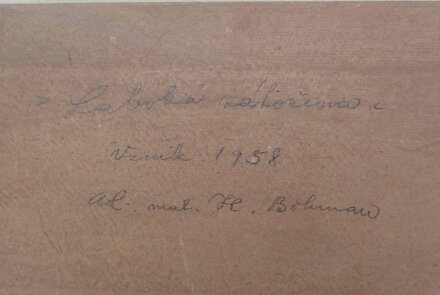 „Labská zátočina“
Vznik 1958
Ak. mal. K. Böhman